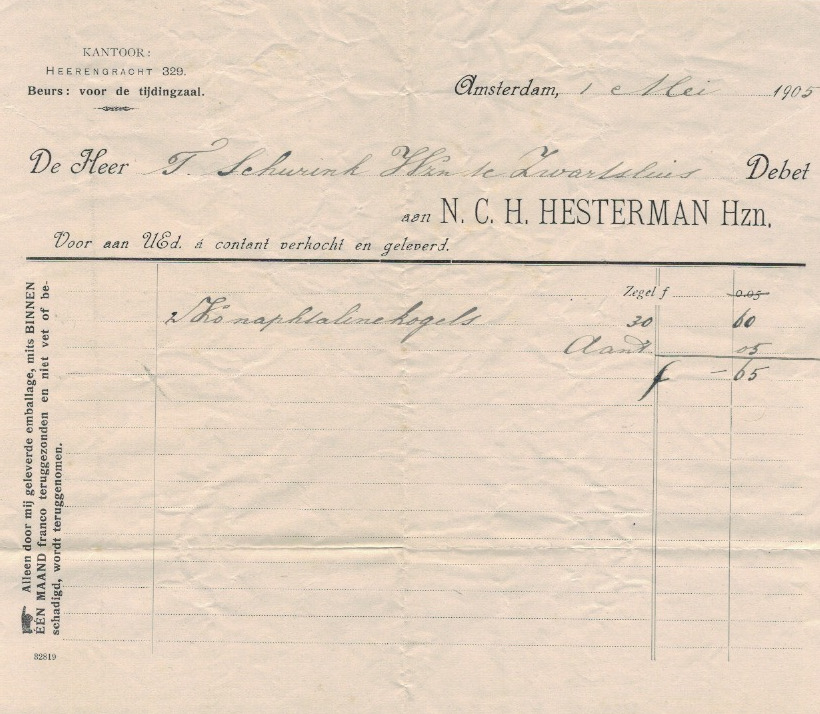 KANTOOR:
HEERENGRACHT 329.
Beurs: voor de tijdingzaal.
Amsterdam, 1 Mei 1905
De Heer T. Schurink Hzn te Zwartsluis Debet
aan N. C. H. HESTERMAN Hzn.
Voor aan UEd. á contant verkocht en geleverd.
Zegel f 0.05
2 Ko naphtalinekogels 30 60
05
f - 65
Alleen door mij geleverde emballage, mits BINNEN
ÉÉN MAAND franco teruggezonden en niet vet of be-
schadigd, wordt teruggenomen.
32819